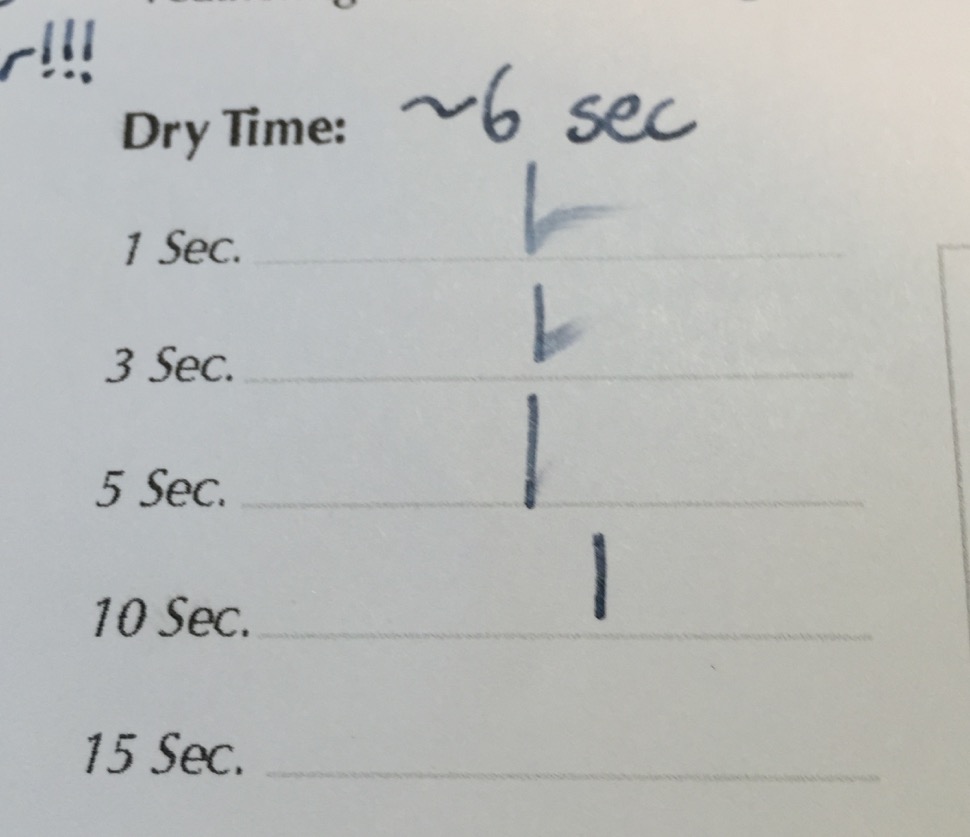 r!!!
Dry Time: ~6 sec
1 Sec.
3 Sec.
5 Sec.
10 Sec.
15 Sec.